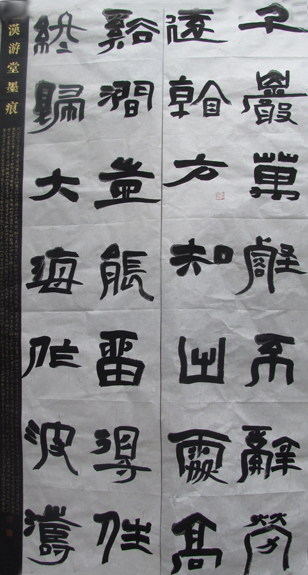 千巖萬壑不辭勞
遠看方知出處高
谿澗豈能留得住
終歸大海作波濤
漢游堂墨痕